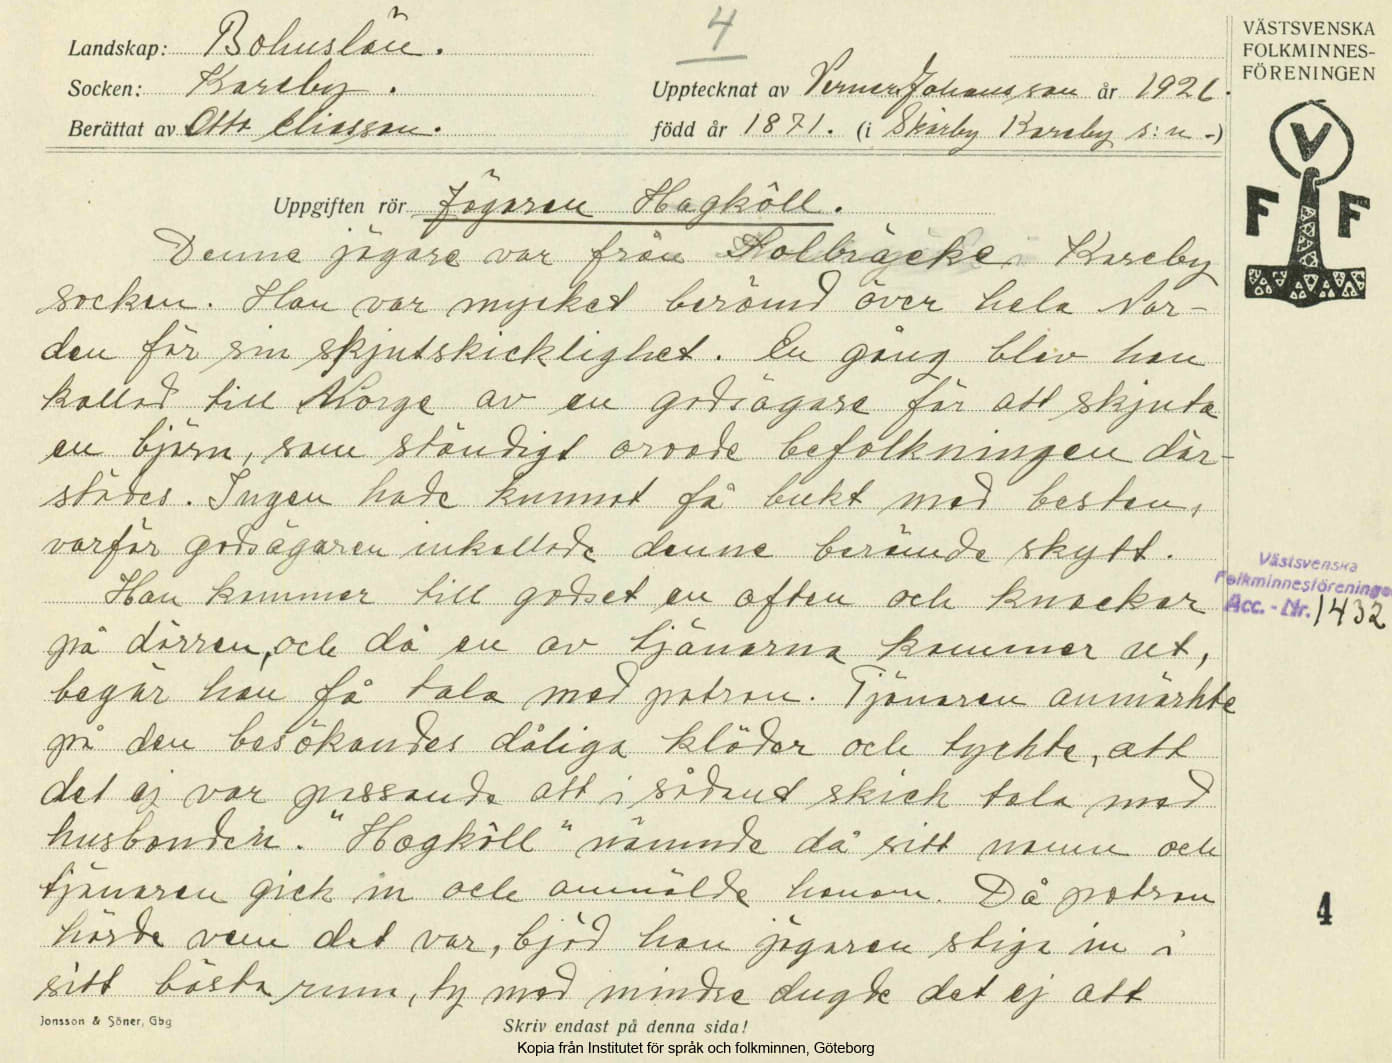 4
Landskap: Bohuslän.
Socken: Kareby.
Upptecknat av Verner Johansson år 1926.
Berättat av Otto Eliasson.
född år 1871. (i Skärby Kareby s:n.-)
VÄSTSVENSKA
FOLKMINNES-
FÖRENINGEN
V
F F
Uppgiften rör Jägaren Hagköll.
Denne jägare var från Kolbräcke i Kareby
socken. Han var mycket berömd över hela Nor-
den för sin skjutskicklighet. En gång blev han
kallad till Norge av en godsägare för att skjuta
en björn, som ständigt oroade befolkningen där-
städes. Ingen hade kunnat få bukt med besten,
varför godsägaren inkallade denne berömde skytt.
Han kommer till godset en afton och knackar
på dörren, och då en av tjänarna kommer ut,
begär han få tala med patron. Tjänaren anmärkte
på den besökandes dåliga kläder och tyckte, att
det ej var passande att i sådant skick tala med
husbonden. "Hagköll" nämnde då sitt namn och
tjänaren gick in och anmälde honom. Då patron
hörde vem det var, bjöd han jägaren stiga in i
sitt bästa rum, ty med mindre dugde det ej att
Västsvenska
Folkminnesföreningen
Acc. - Nr. 1432
4
Jonsson & Söner, Gbg
Skriv endast på denna sida!
Kopia från Institutet för språk och folkminnen, Göteborg